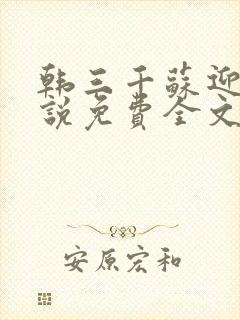 韩三千蘇迎
說免費全文
安原宏和